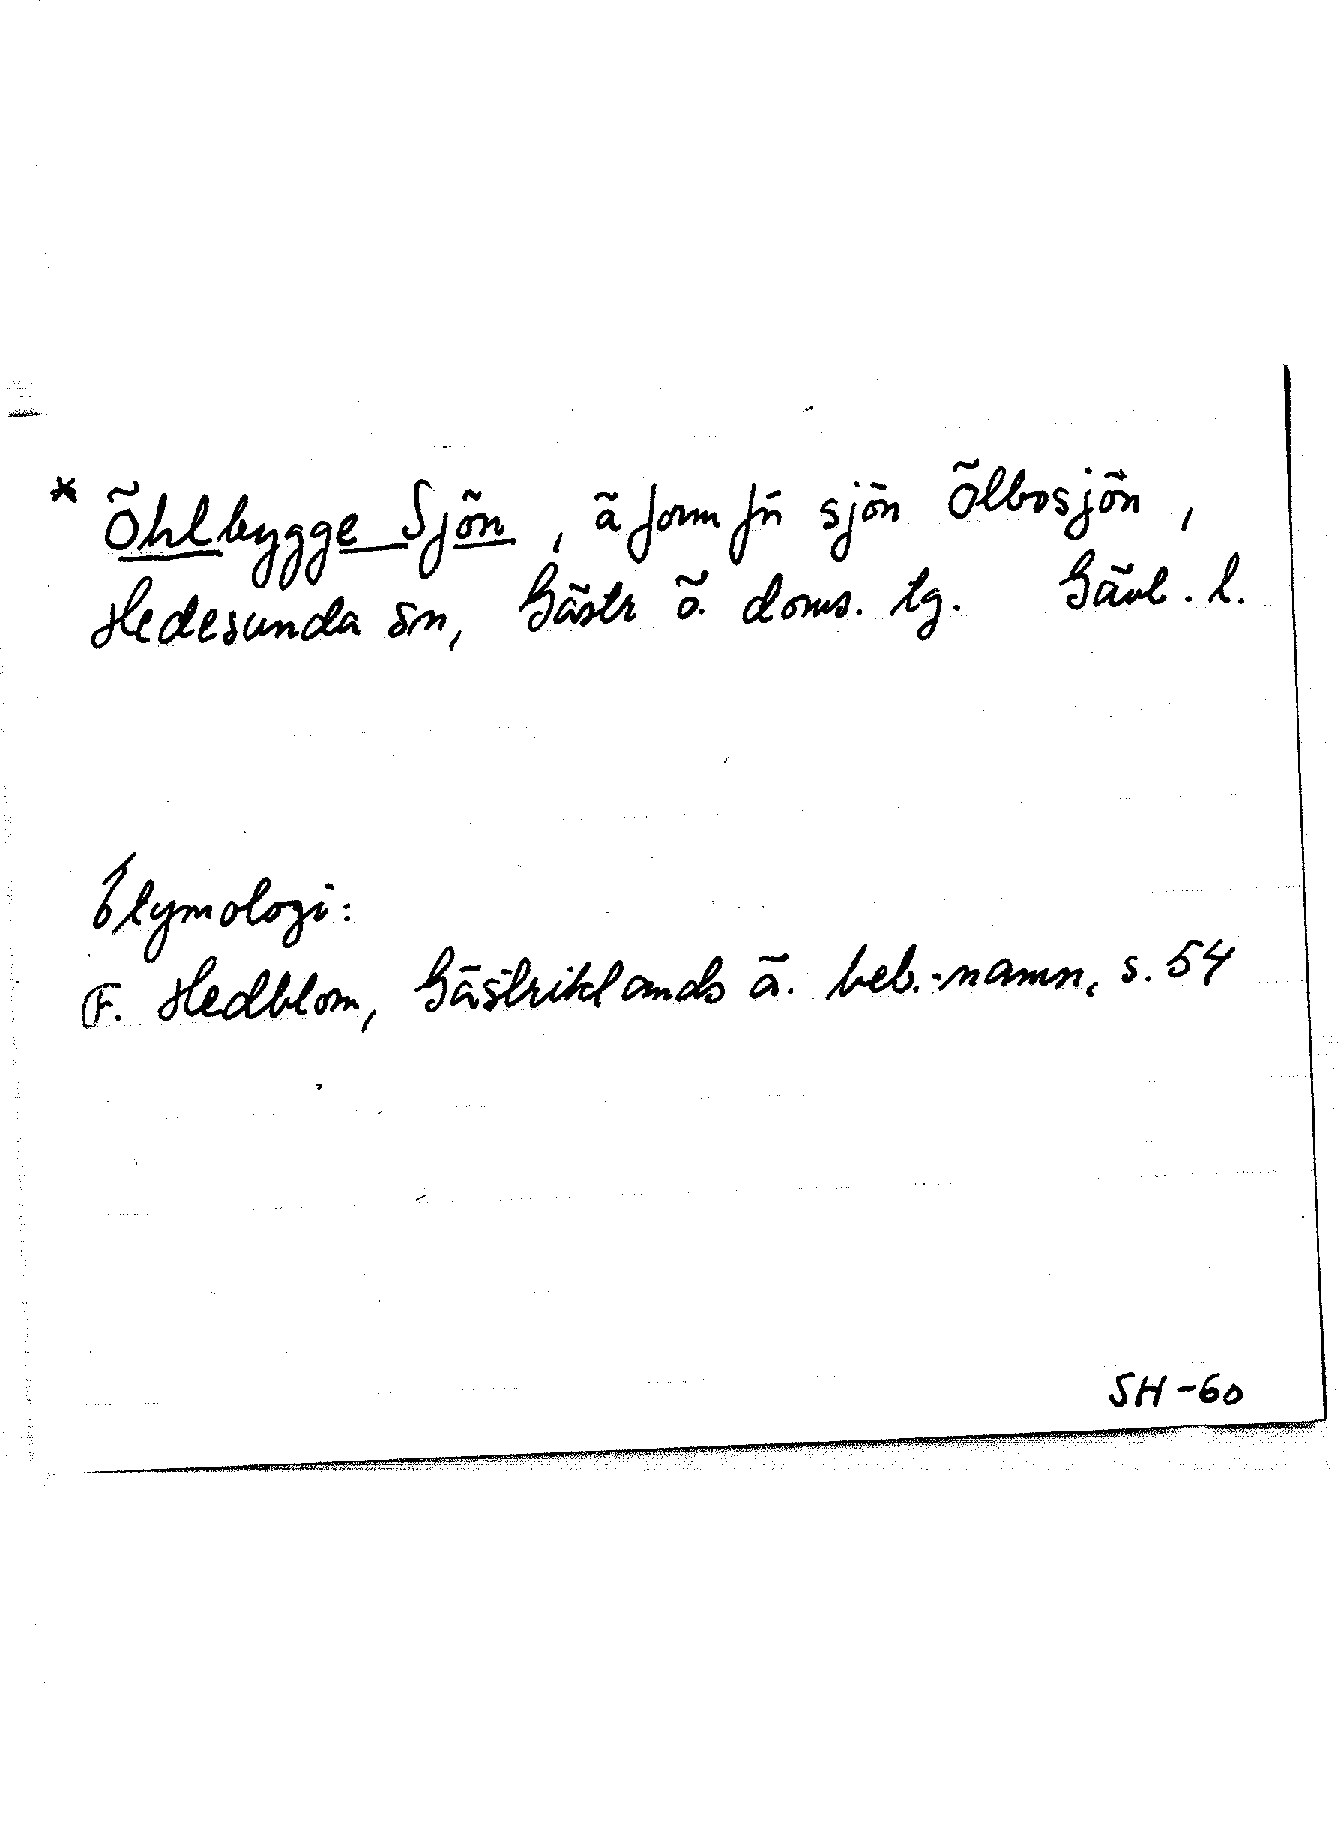 * Öhlbygge Sjön, ä form för sjön Ölbosjön,
Hedesunda sn, Gästr ö. doms. tg. Gävl. l.
Etymologi:
F. Hedblom, Gästriklands ä. beb.-namn, s. 54
SH-60